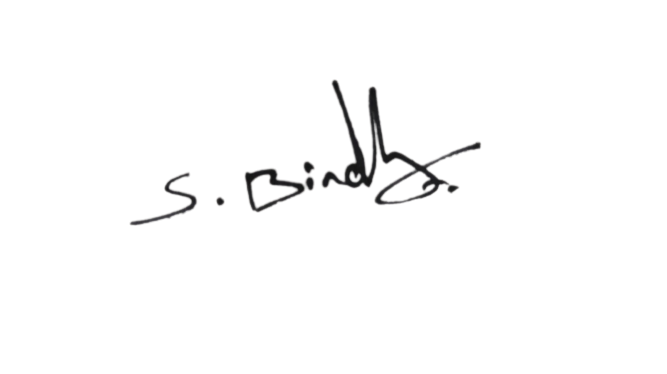 S. Bindhu.